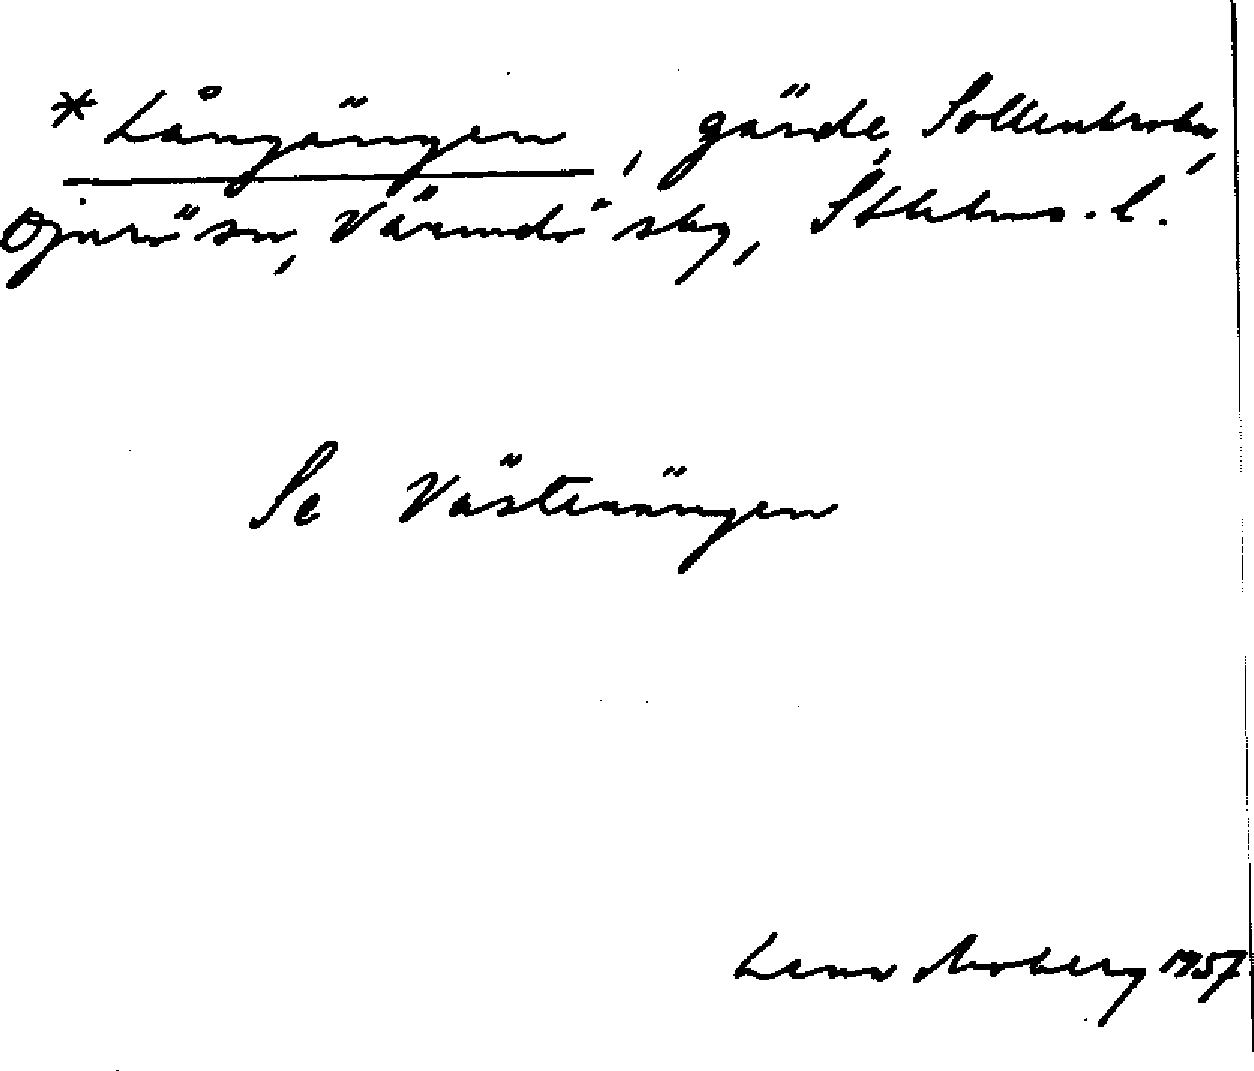 * Långängen, gärde, Sollenkroka,
Djurö sn, Värmdö skg, Sthlms. l.
Se Västerängen
Lena Moberg 1957.